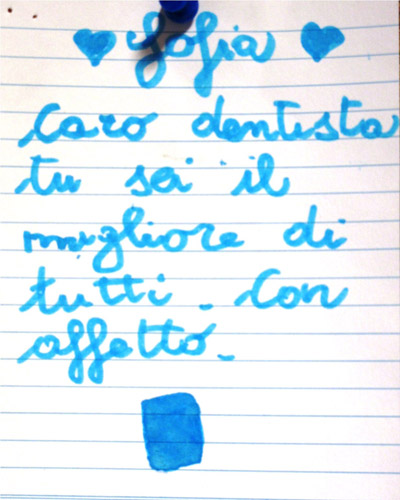 Sofia
Caro dentista
tu sei il
migliore di
tutti. Con
affetto.